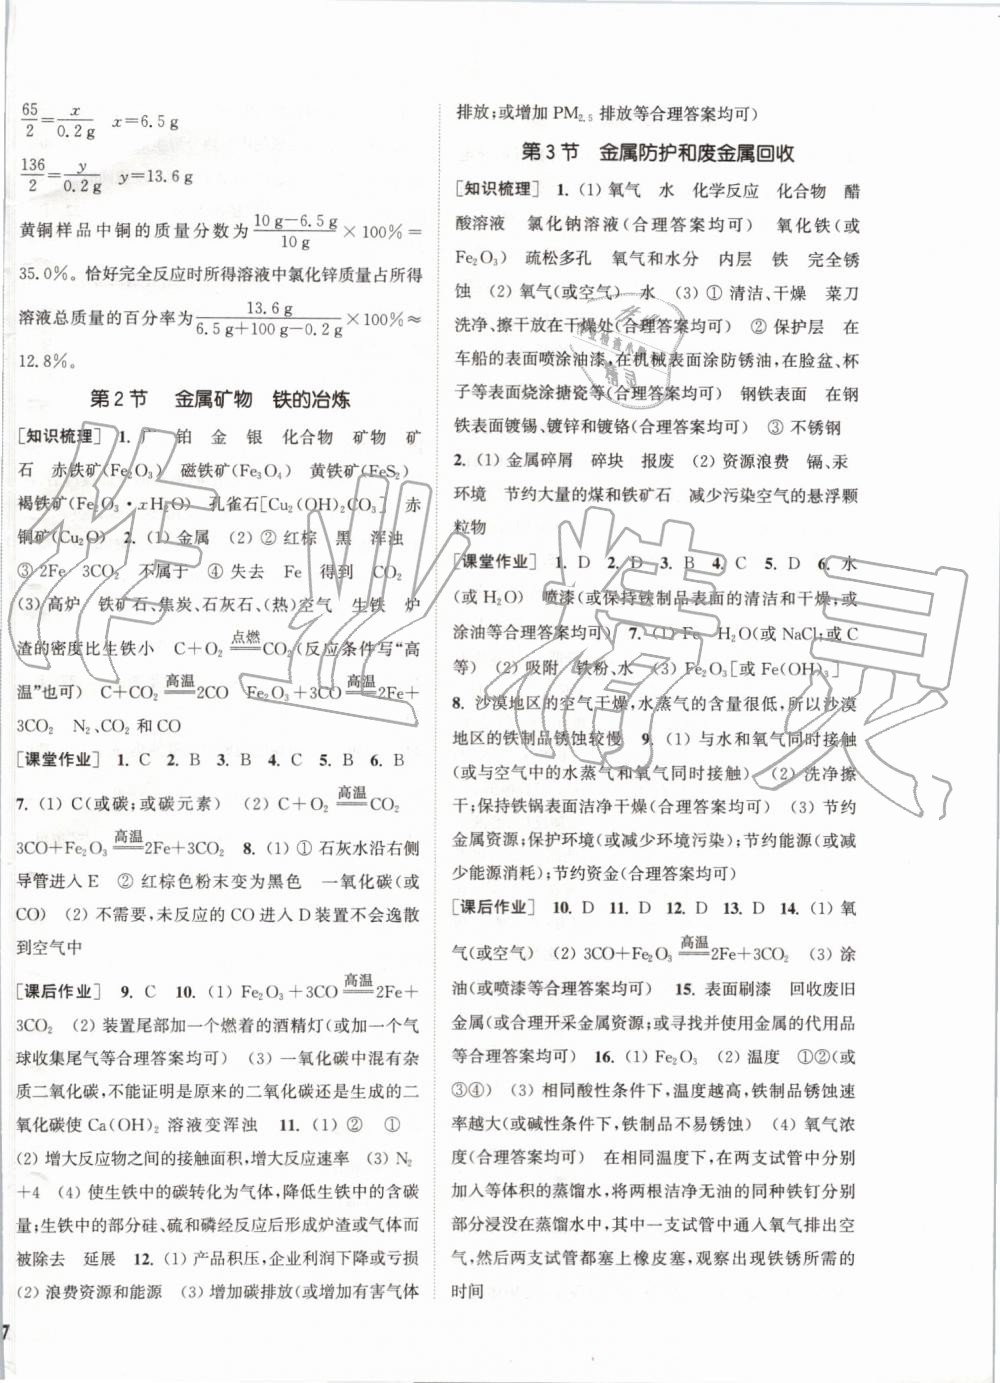 65/2=x/0.2 g　x=6.5 g
136/2=y/0.2 g　y=13.6 g
黄铜样品中铜的质量分数为 (10 g−6.5 g)/10 g ×100%=
35.0%。恰好完全反应时所得溶液中氯化锌质量占所得
溶液总质量的百分率为 13.6 g/(6.5 g+100 g−0.2 g) ×100%≈
12.8%。
第 2 节　金属矿物　铁的冶炼
[知识梳理] 1. 铂　金　银　化合物　矿物　矿
石　赤铁矿(Fe₂O₃)　磁铁矿(Fe₃O₄)　黄铁矿(FeS₂)
褐铁矿(Fe₂O₃·xH₂O)　孔雀石[Cu₂(OH)₂CO₃]　赤
铜矿(Cu₂O) 2. (1) 金属 (2) ② 红棕　黑　浑浊
③ 2Fe　3CO₂　不属于 ④ 失去　Fe　得到　CO
(3) 高炉　铁矿石、焦炭、石灰石、(热)空气　生铁　炉
渣的密度比生铁小　C+O₂ =点燃= CO₂(反应条件写“高
温”也可)　C+CO₂ =高温= 2CO　Fe₂O₃+3CO =高温= 2Fe+
3CO₂　N₂、CO₂ 和 CO
[课堂作业] 1. C 2. B 3. B 4. C 5. B 6. B
7. (1) C(或碳;或碳元素) (2) C+O₂ =高温= CO₂
3CO+Fe₂O₃ =高温= 2Fe+3CO₂ 8. (1) ① 石灰水沿右侧
导管进入 E ② 红棕色粉末变为黑色　一氧化碳(或
CO) (2) 不需要,未反应的 CO 进入 D 装置不会逸散
到空气中
[课后作业] 9. C 10. (1) Fe₂O₃+3CO =高温= 2Fe+
3CO₂ (2) 装置尾部加一个燃着的酒精灯(或加一个气
球收集尾气等合理答案均可) (3) 一氧化碳中混有杂
质二氧化碳,不能证明是原来的二氧化碳还是生成的二
氧化碳使 Ca(OH)₂ 溶液变浑浊 11. (1) ②　①
(2) 增大反应物之间的接触面积,增大反应速率 (3) N₂
+4 (4) 使生铁中的碳转化为气体,降低生铁中的含碳
量;生铁中的部分硅、硫和磷经反应后形成炉渣或气体而
被除去　延展 12. (1) 产品积压,企业利润下降或亏损
(2) 浪费资源和能源 (3) 增加碳排放(或增加有害气体
7
排放;或增加 PM₂.₅ 排放等合理答案均可)
第 3 节　金属防护和废金属回收
[知识梳理] 1. (1) 氧气　水　化学反应　化合物　醋
酸溶液　氯化钠溶液(合理答案均可)　氧化铁(或
Fe₂O₃)　疏松多孔　氧气和水分　内层　铁　完全锈
蚀 (2) 氧气(或空气)　水 (3) ① 清洁、干燥　菜刀
洗净、擦干放在干燥处(合理答案均可) ② 保护层　在
车船的表面喷涂油漆,在机械表面涂防锈油,在脸盆、杯
子等表面烧涂搪瓷等(合理答案均可)　钢铁表面　在钢
铁表面镀锡、镀锌和镀铬(合理答案均可) ③ 不锈钢
2. (1) 金属碎屑　碎块　报废 (2) 资源浪费　镉、汞
环境　节约大量的煤和铁矿石　减少污染空气的悬浮颗
粒物
[课堂作业] 1. D 2. D 3. B 4. C 5. D 6. 水
(或 H₂O)　喷漆(或保持铁制品表面的清洁和干燥或
涂油等合理答案均可) 7. (1) Fe　H₂O(或 NaCl;或 C
等) (2) 吸附　铁粉、水 (3) Fe₂O₃[或 Fe(OH)₃]
8. 沙漠地区的空气干燥,水蒸气的含量很低,所以沙漠
地区的铁制品锈蚀较慢 9. (1) 与水和氧气同时接触
(或与空气中的水蒸气和氧气同时接触) (2) 洗净擦
干;保持铁锅表面洁净干燥(合理答案均可) (3) 节约
金属资源;保护环境(或减少环境污染);节约能源(或减
少能源消耗);节约资金(合理答案均可)
[课后作业] 10. D 11. D 12. D 13. D 14. (1) 氧
气(或空气) (2) 3CO+Fe₂O₃ =高温= 2Fe+3CO₂ (3) 涂
油(或喷漆等合理答案均可) 15. 表面刷漆　回收废旧
金属(或合理开采金属资源;或寻找并使用金属的代用品
等合理答案均可) 16. (1) Fe₂O₃ (2) 温度　①②(或
③④) (3) 相同酸性条件下,温度越高,铁制品锈蚀速
率越大(或碱性条件下,铁制品不易锈蚀) (4) 氧气浓
度(合理答案均可)　在相同温度下,在两支试管中分别
加入等体积的蒸馏水,将两根洁净无油的同种铁钉分别
部分浸没在蒸馏水中,其中一支试管中通入氧气排出空
气,然后两支试管都塞上橡皮塞,观察出现铁锈所需的
时间
作业精灵